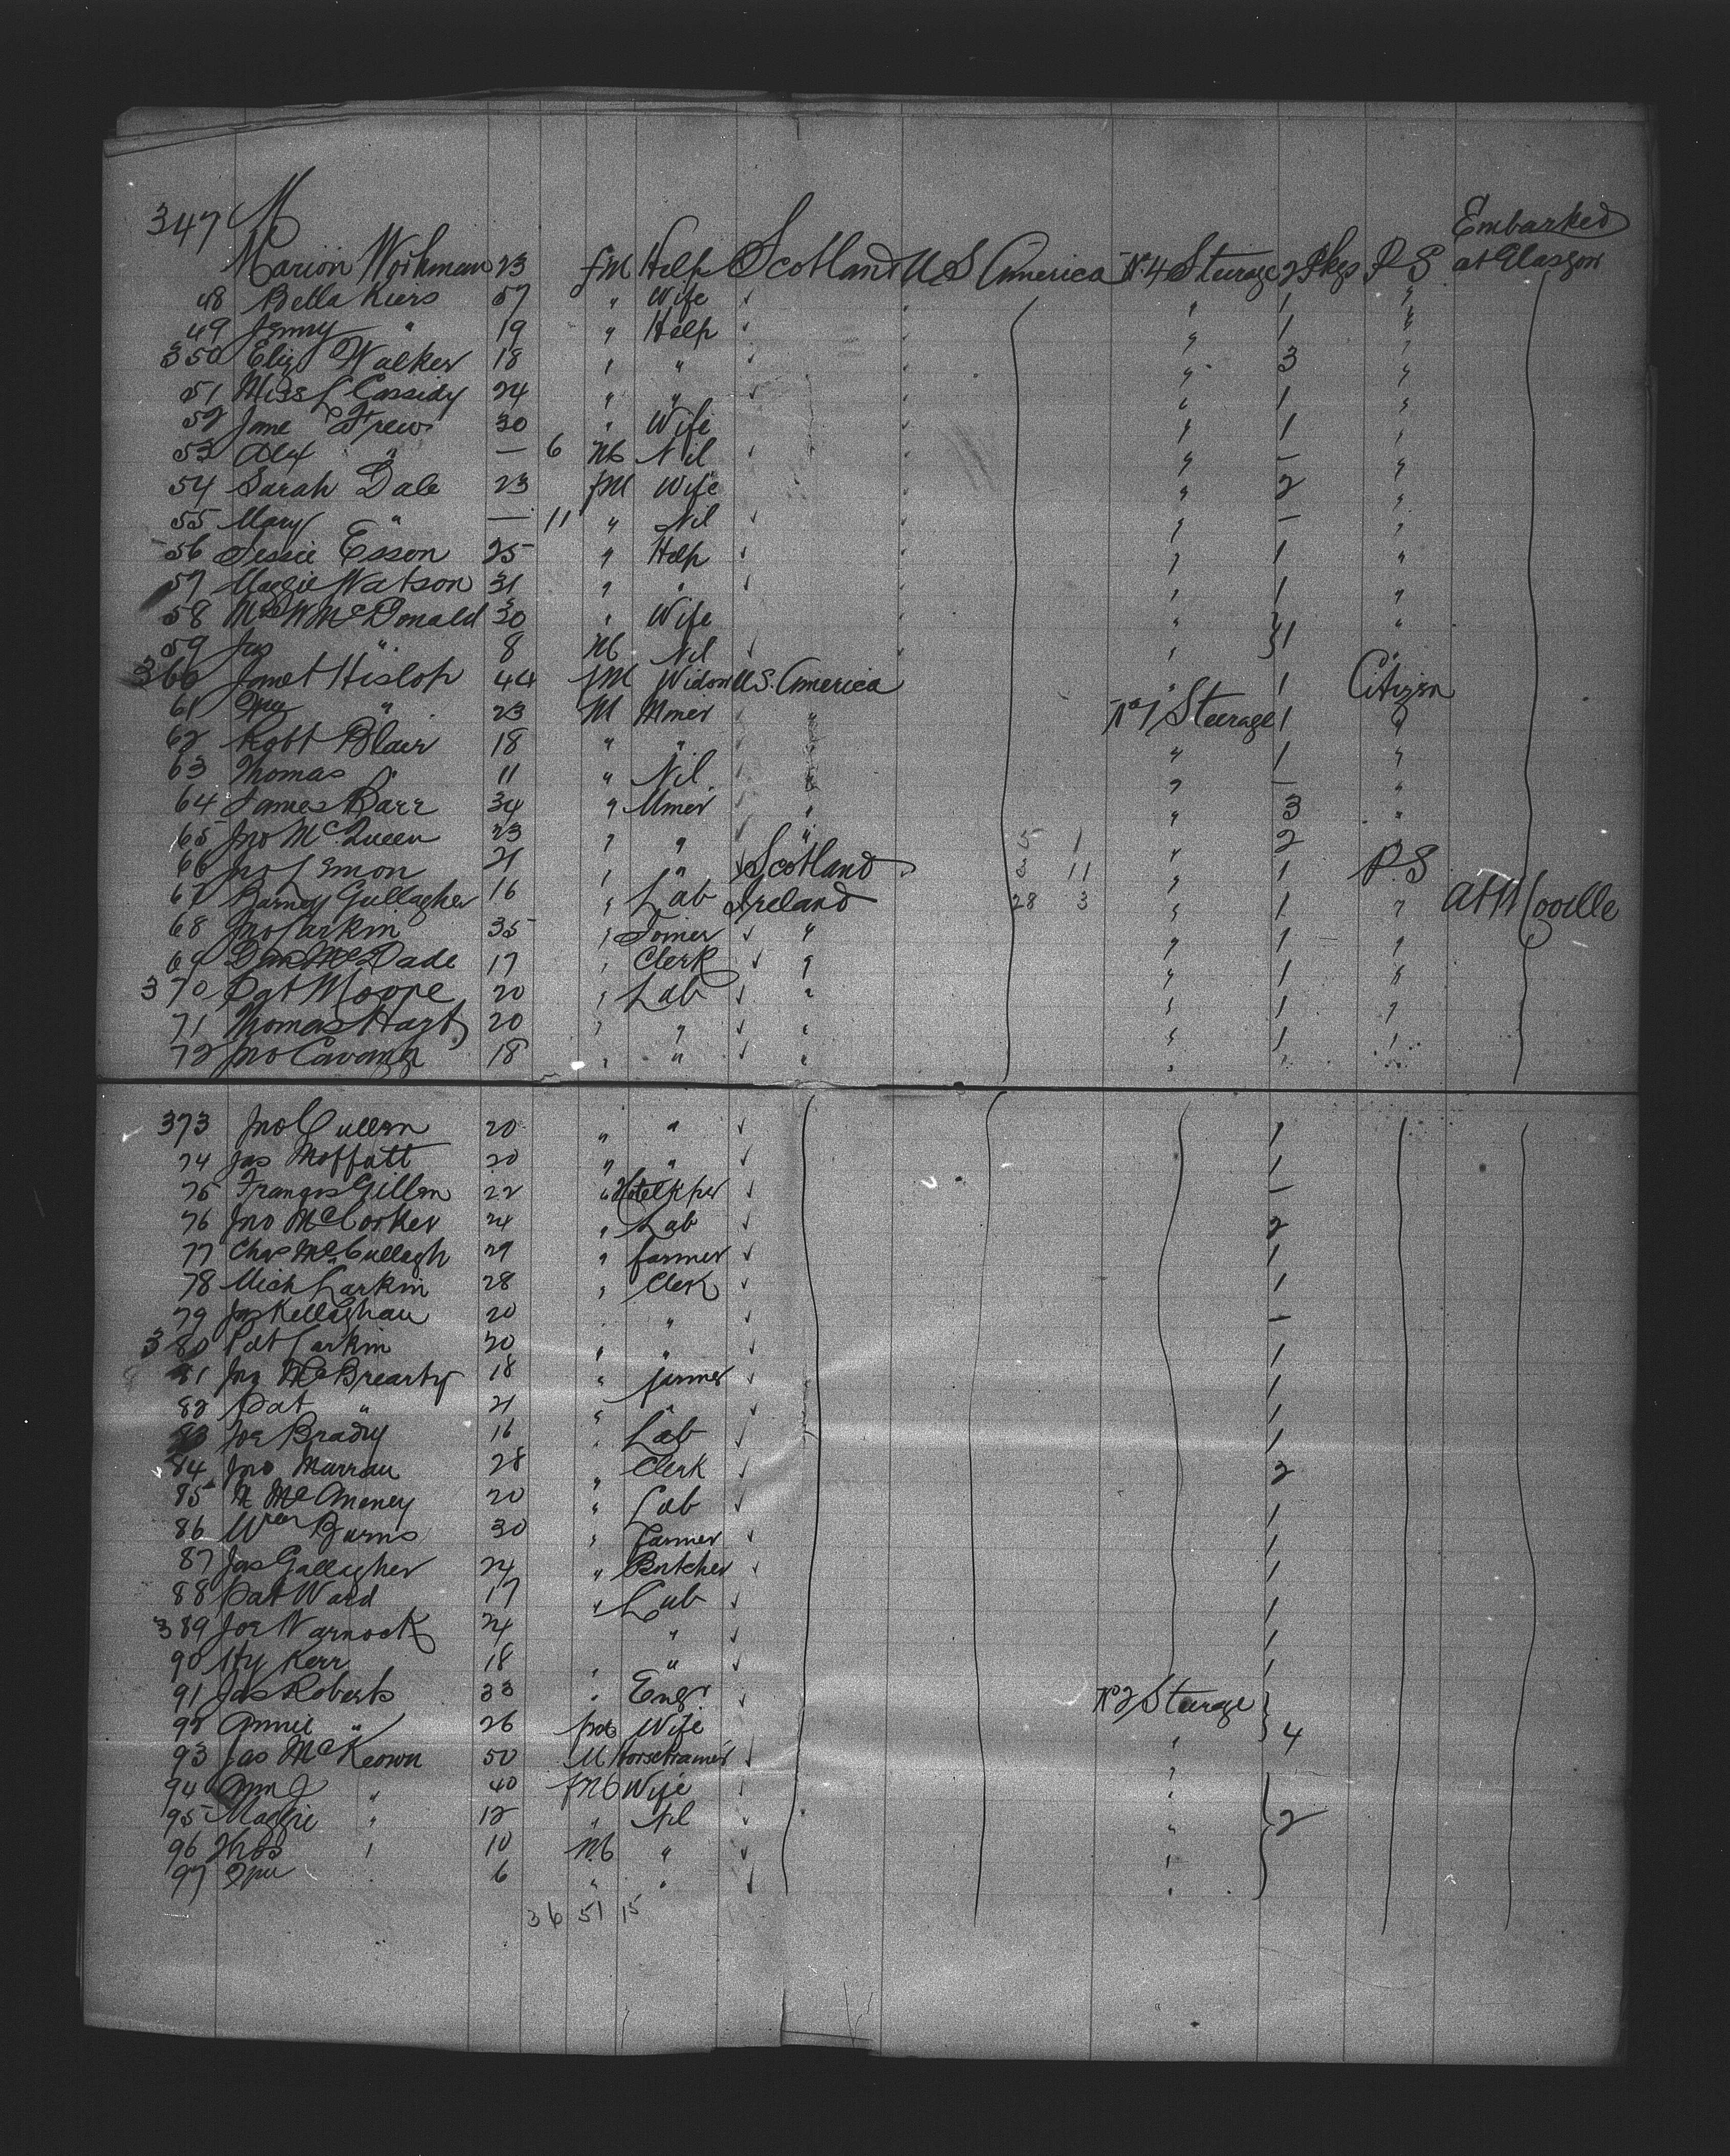 Embarked
347 M
Marion Workman 23 fM Help Scotland U S America No 4 Steerage 2 Pkgs P S at Glasgow
48 Bella Kiers 57 " Wife ✓ " 1 "
49 Jenny " 19 " Help ✓ " 1 "
350 Eliz Walker 18 " " " 3 "
51 Miss L Cassidy 24 " " ✓ " 1 "
52 Jane Frew 30 " Wife " 1 "
53 Alex " — 6 M Nil ✓ " — "
54 Sarah Dale 23 fM Wife " 2 "
55 Mary " — 11 " Nil ✓ " — "
56 Jessie Esson 25 " Help ✓ " 1 "
57 Maggie Watson 31 " " ✓ " 1 "
58 Mrs W McDonald 30 " Wife " "
59 Jas " 8 M Nil ✓ " } 1 "
360 Janet Hislop 44 fM Widow U.S. America " 1 Citizen
61 " 23 M Miner ✓ " No 1 Steerage 1 "
62 Robt Blair 18 " " ✓ " " 1 "
63 Thomas " 11 " Nil ✓ " " — "
64 James Barr 34 " Miner " " 3 "
65 Jno McQueen 23 " " ✓ " 5 1 " 2 "
66 Jno Lemon 21 " " ✓ Scotland 3 11 " 1 P.S
67 Barney Gallagher 16 " Lab Ireland 28 3 " 1 " At Moville
68 Jno Larkin 35 " Joiner ✓ " " 1 "
69 Dan McDade 17 " Clerk ✓ " " 1 "
370 Pat Moore 20 " Lab ✓ " " 1 "
71 Thomas Hart 20 " " ✓ " " 1 "
72 Jno Cavanagh 18 " " ✓ " " 1 "
373 Jno Cullen 20 " " ✓ 1
74 Jas Moffatt 20 " " ✓ 1
75 Francis Gillen 22 " Hotelkper ✓ —
76 Jno McCorker 24 " Lab ✓ 2
77 Chas McCullagh 29 " farmer ✓ 1
78 Mich Larkin 28 " Clerk ✓ 1
79 Jas Kellaghan 20 " " —
380 Pat Larkin 20 " " ✓ 1
81 Jno McBrearty 18 " farmer ✓ 1
82 Pat " 21 " " ✓ 1
83 Joe Brady 16 " Lab ✓ 1
84 Jno Murray 28 " Clerk ✓ 2
85 M McAneney 20 " Lab ✓ 1
86 Wm Burns 30 " Farmer ✓ 1
87 Jas Gallagher 24 " Butcher ✓ 1
88 Pat Ward 17 " Lab ✓ 1
389 Joe Warnock 24 " ✓ 1
90 Hy Kerr 18 " " ✓ 1
91 Jas Roberts 33 " Engr ✓ No 2 Steerage
92 Annie " 26 Wife " } 4
93 Jas McKeown 50 M Horsetrainer ✓ "
94 Ann J " 40 fM Wife ✓ "
95 Maggie " 12 " Nil ✓ " } 2
96 Thos " 10 M " ✓ "
97 6 " " ✓ "
36 51 15